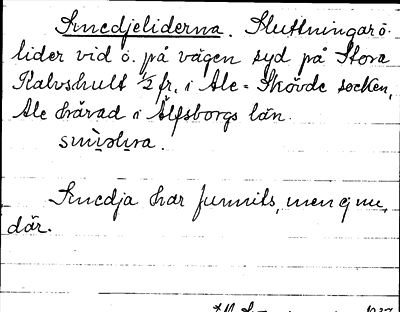 Smedjeliderna. Sluttningar o.
lider vid o. på vägen syd på Stora
Kalvshult ½ fr. i Ale-Skövde socken,
Ale härad i Älfsborgs län.
Smedja har funnits, men ej nu,
där.